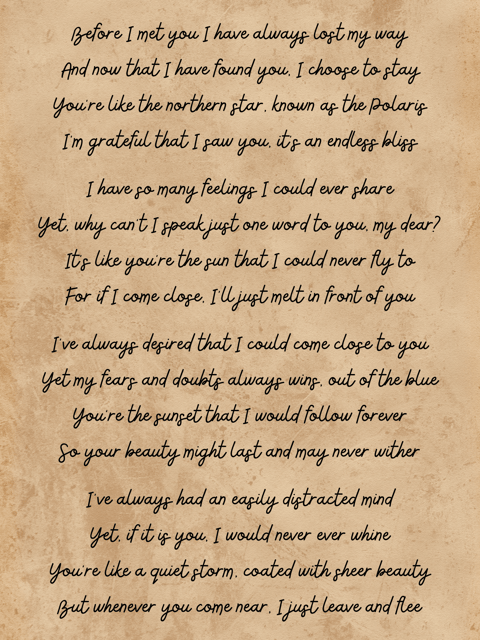 Before I met you I have always lost my way
And now that I have found you, I choose to stay
You're like the northern star, known as the Polaris
I'm grateful that I saw you, it's an endless bliss
I have so many feelings I could ever share
Yet, why can't I speak just one word to you, my dear?
It's like you're the sun that I could never fly to
For if I come close, I'll just melt in front of you
I've always desired that I could come close to you
Yet my fears and doubts always wins, out of the blue
You're the sunset that I would follow forever
So your beauty might last and may never wither
I've always had an easily distracted mind
Yet, if it is you, I would never ever whine
You're like a quiet storm, coated with sheer beauty
But whenever you come near, I just leave and flee